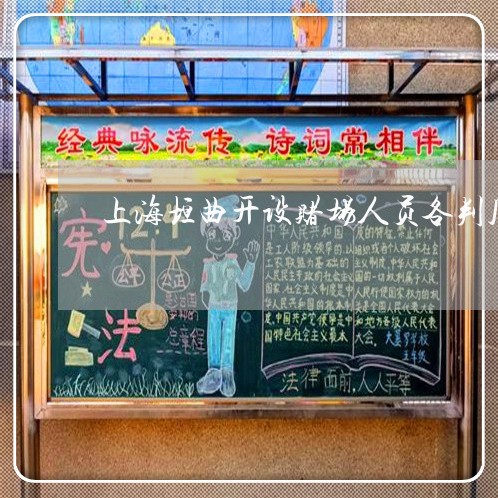 经典咏流传 诗词常相伴
上海垣曲开设赌场人员各判
宪
法
12·4
公平
公正
总章程
中华人民共和国
是工人阶级领导的,以
工农联盟为基础的
人民民主专政的社会主义
国家,社会主义制度是中
华人民共和国的根本制
度,中国共产党领导是中
国特色社会主义最本
质的特征,禁止任何
组织或者个人破坏社会
主义制度,中华人民共和
国的一切权利属于人民,
人民行使国家权力的机
关是全国人民代表大会
和地方各级人民代表
大会。
五年级
法律面前,人人平等